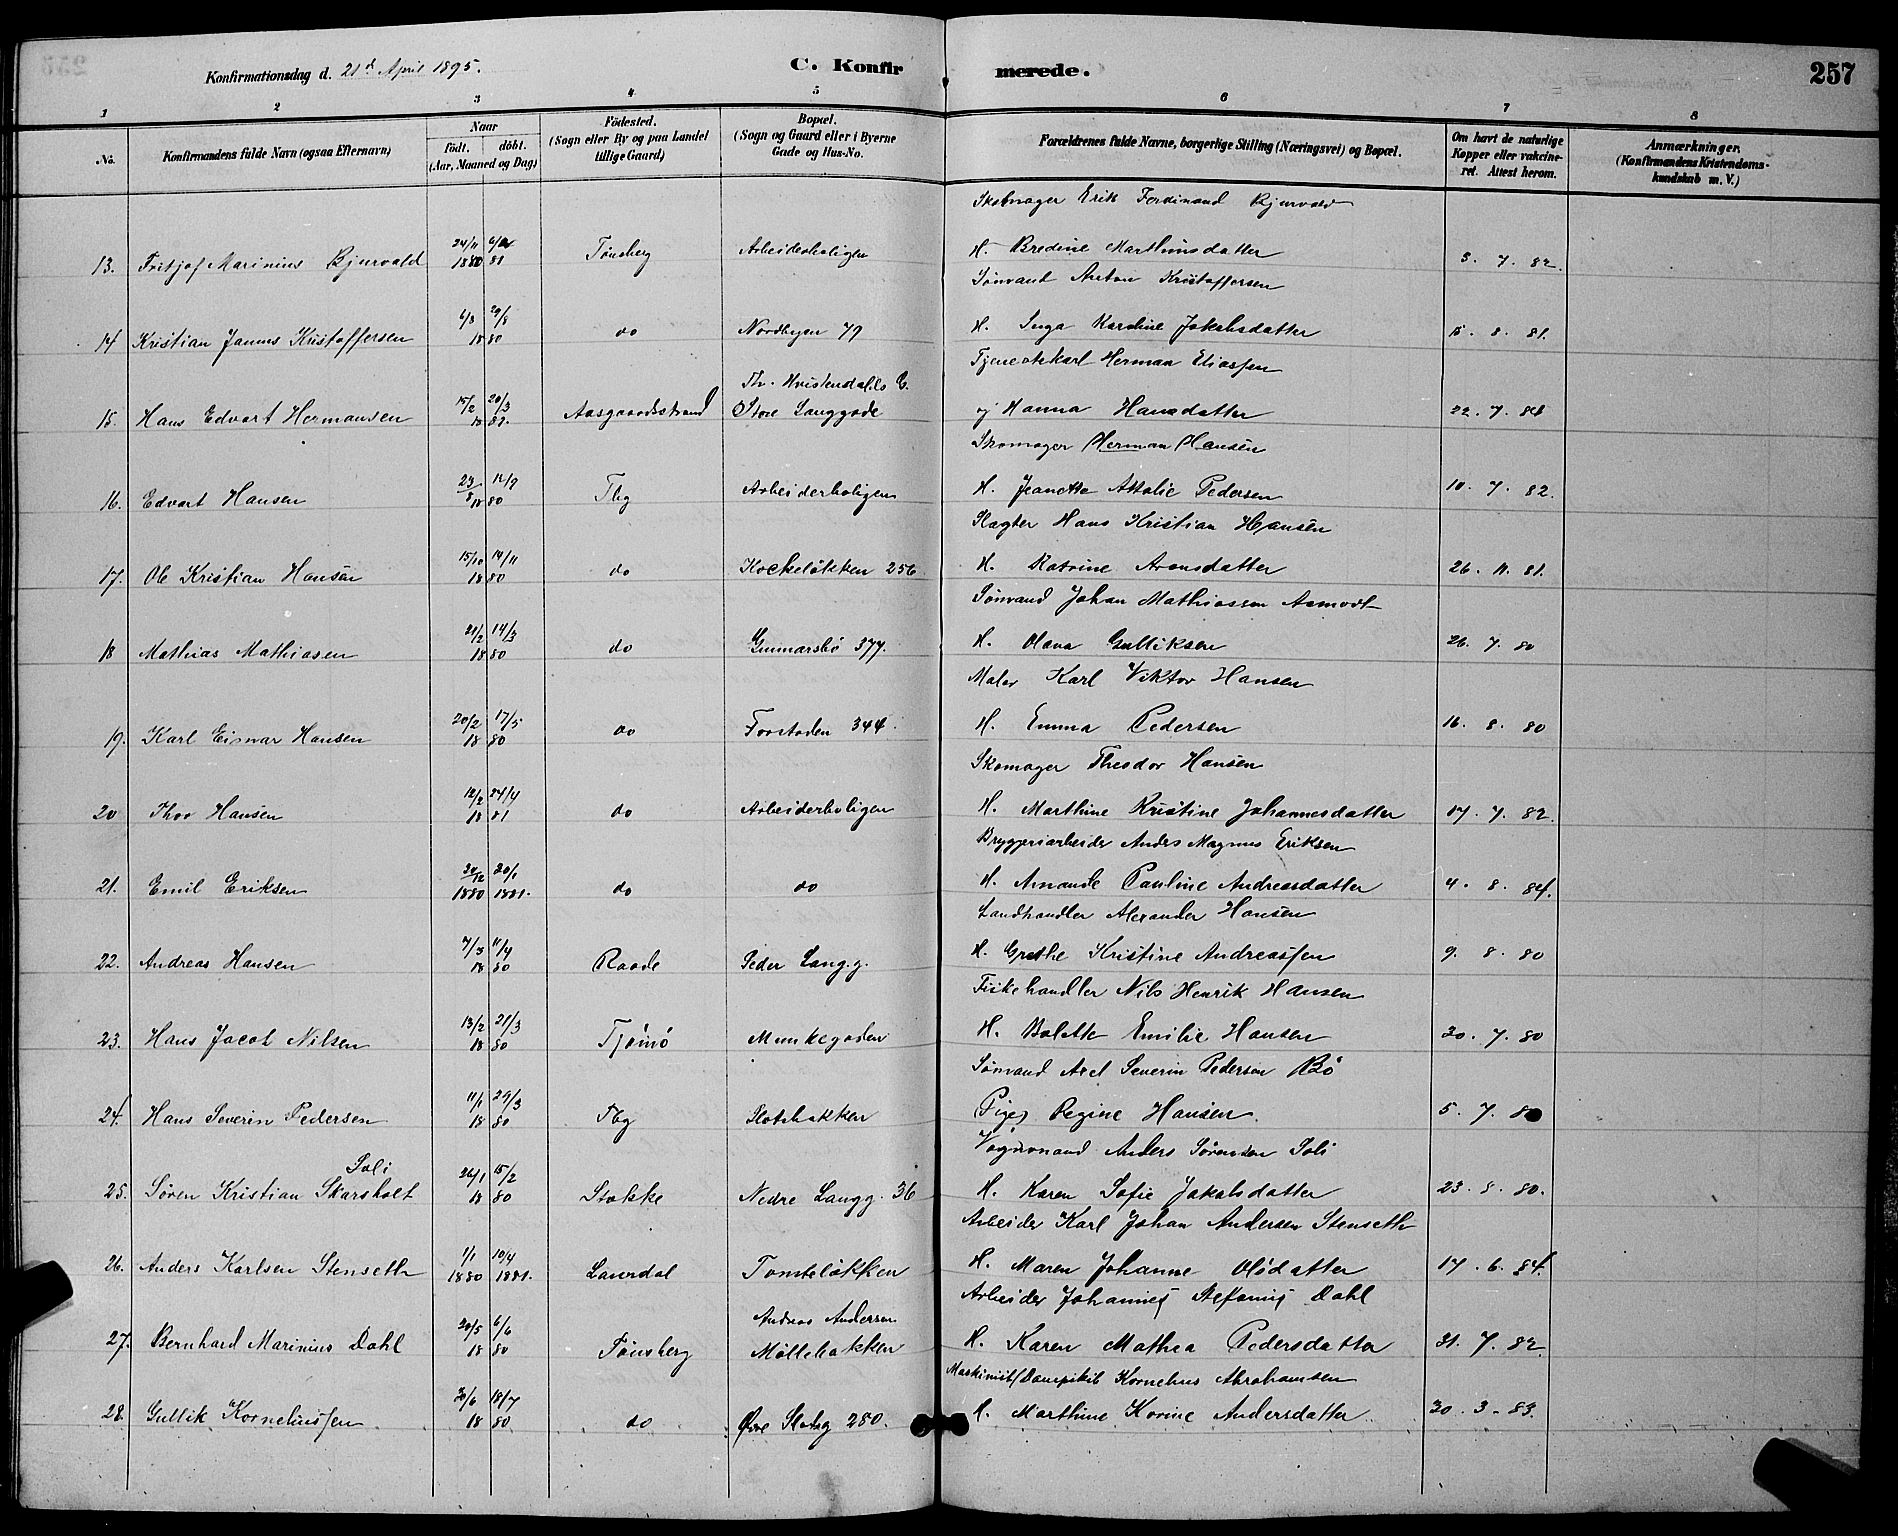 Konfirmationsdag d. 21d April 1895.
C. Konfirmerede.
257
1 2 3 4 5 6 7 8
No.
Konfirmandens fulde Navn (ogsaa Efternavn)
Naar
født. døbt.
(Aar, Maaned og Dag)
Födested.
(Sogn eller By og paa Landet
tillige Gaard)
Bopæl.
(Sogn og Gaard eller i Byerne
Gade og Hus-No.
Forældrenes fulde Navne, borgerlige Stilling (Næringsvei) og Bopæl.
Om havt de naturlige
Kopper eller vakcine-
ret. Attest herom.
Anmærkninger.
(Konfirmandens Kristendoms-
kundskab m. V.)
Skomager Erik Ferdinand Bjurvald
13. Fritjof Marinius Bjurvald 24/11 1880 81 Tønsberg Arbeiderboligen H. Bredine Marthinsdatter 3. 7. 82.
Sømand Anton Kristoffersen
14 Kristian Janus Kristoffersen 6/3 29/8 18 80 do Nordbyen 79 H. Inga Karoline Jakobsdatter 15. 8. 81.
Tjenestekarl Herman Eliassen
15. Hans Edvart Hermansen 15/2 20/3 18 81. Aasgaardsstrand Th. Hvistendahls C. Store Langgade Hanna Hansdatter 22. 7. 81
Skomager Herman Hansen
16. Edvart Hansen 23/8 12/9 18 80 Tbg Arbeiderboligen H. Jeanette Attalie Pedersen 10. 7. 82.
Slagter Hans Kristian Hansen
17. Ole Kristian Hansen 15/10 14/11 18 80 do Kockeløkken 256 H. Katrine Aronsdatter 26. 11. 81.
Sømand Johan Mathiassen Asmodt
18 Mathias Mathiasen 21/2 14/3 18 80 do Gunnarsbø 377. H. Olava Gulliksen 26. 7. 80
Maler Karl Viktor Hansen
19. Karl Eisnar Hansen 20/2 17/5 18 80 do Forstaden 344. H. Emma Pedersen 16. 8. 80
Skomager Theodor Hansen
20 Thor Hansen 12/2 24/4 18 81 do Arbeiderboligen H. Marthine Kristine Johannesdatter 17. 7. 82.
Bryggeriarbeider Anders Magnus Eriksen
21. Emil Eriksen 20/1 1880 1881. do do H. Amande Pauline Andreasdatter 4. 8. 84.
Landhandler Alexander Hansen
22. Andreas Hansen 7/3 11/4 18 80 Raade Peder Langg. H. Grethe Kristine Andreassen 9. 8. 80
Fiskehandler Nils Henrik Hansen
23. Hans Jacob Nilsen 13/2 21/3 18 80 Tjømø Munkegaden H. Bolette Emilie Hansen 30. 7. 80
Sømand Axel Severin Pedersen Bö
24. Hans Severin Pedersen 11/1 29/3 18 80 Tbg Slotsbakken Pige Regine Hansen 5. 7. 80
Vognmand Anders Sørensen Soli
25. Søren Kristian Skarsholt Soli 26/1 15/2 18 80 Stokke Nedre Langg. 36 H. Karen Sofie Jakobsdatter 23. 8. 80.
Arbeider Karl Johan Andersen Stenseth
26. Anders Karlsen Stenseth 1/1 10/4 1880 1881. Laurdal Tomteløkken H. Maren Johanne Olsdatter 17. 6. 84.
Arbeider Johannes Stefanus Dahl
27. Bernhard Marinius Dahl 20/5 6/6 18 80 Tønsberg Andreas Andersen Møllebakken H. Karen Mathea Pedersdatter 31. 7. 82.
Maskinist/Dampskib Kornelius Abrahamsen
28. Gullik Korneliussen 30/6 18/7 18 80 do Øvre Slotsg 280. H. Marthine Korine Andersdatter 30. 3 - 83.